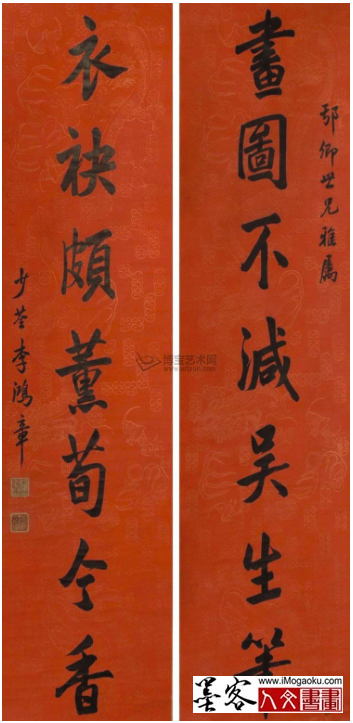 鄂卿世兄雅屬
畫圖不減吳生筆
衣袂頗薰荀令香
少荃李鴻章
博宝艺术网
www.iMogaoku.com
墨客人文書畫